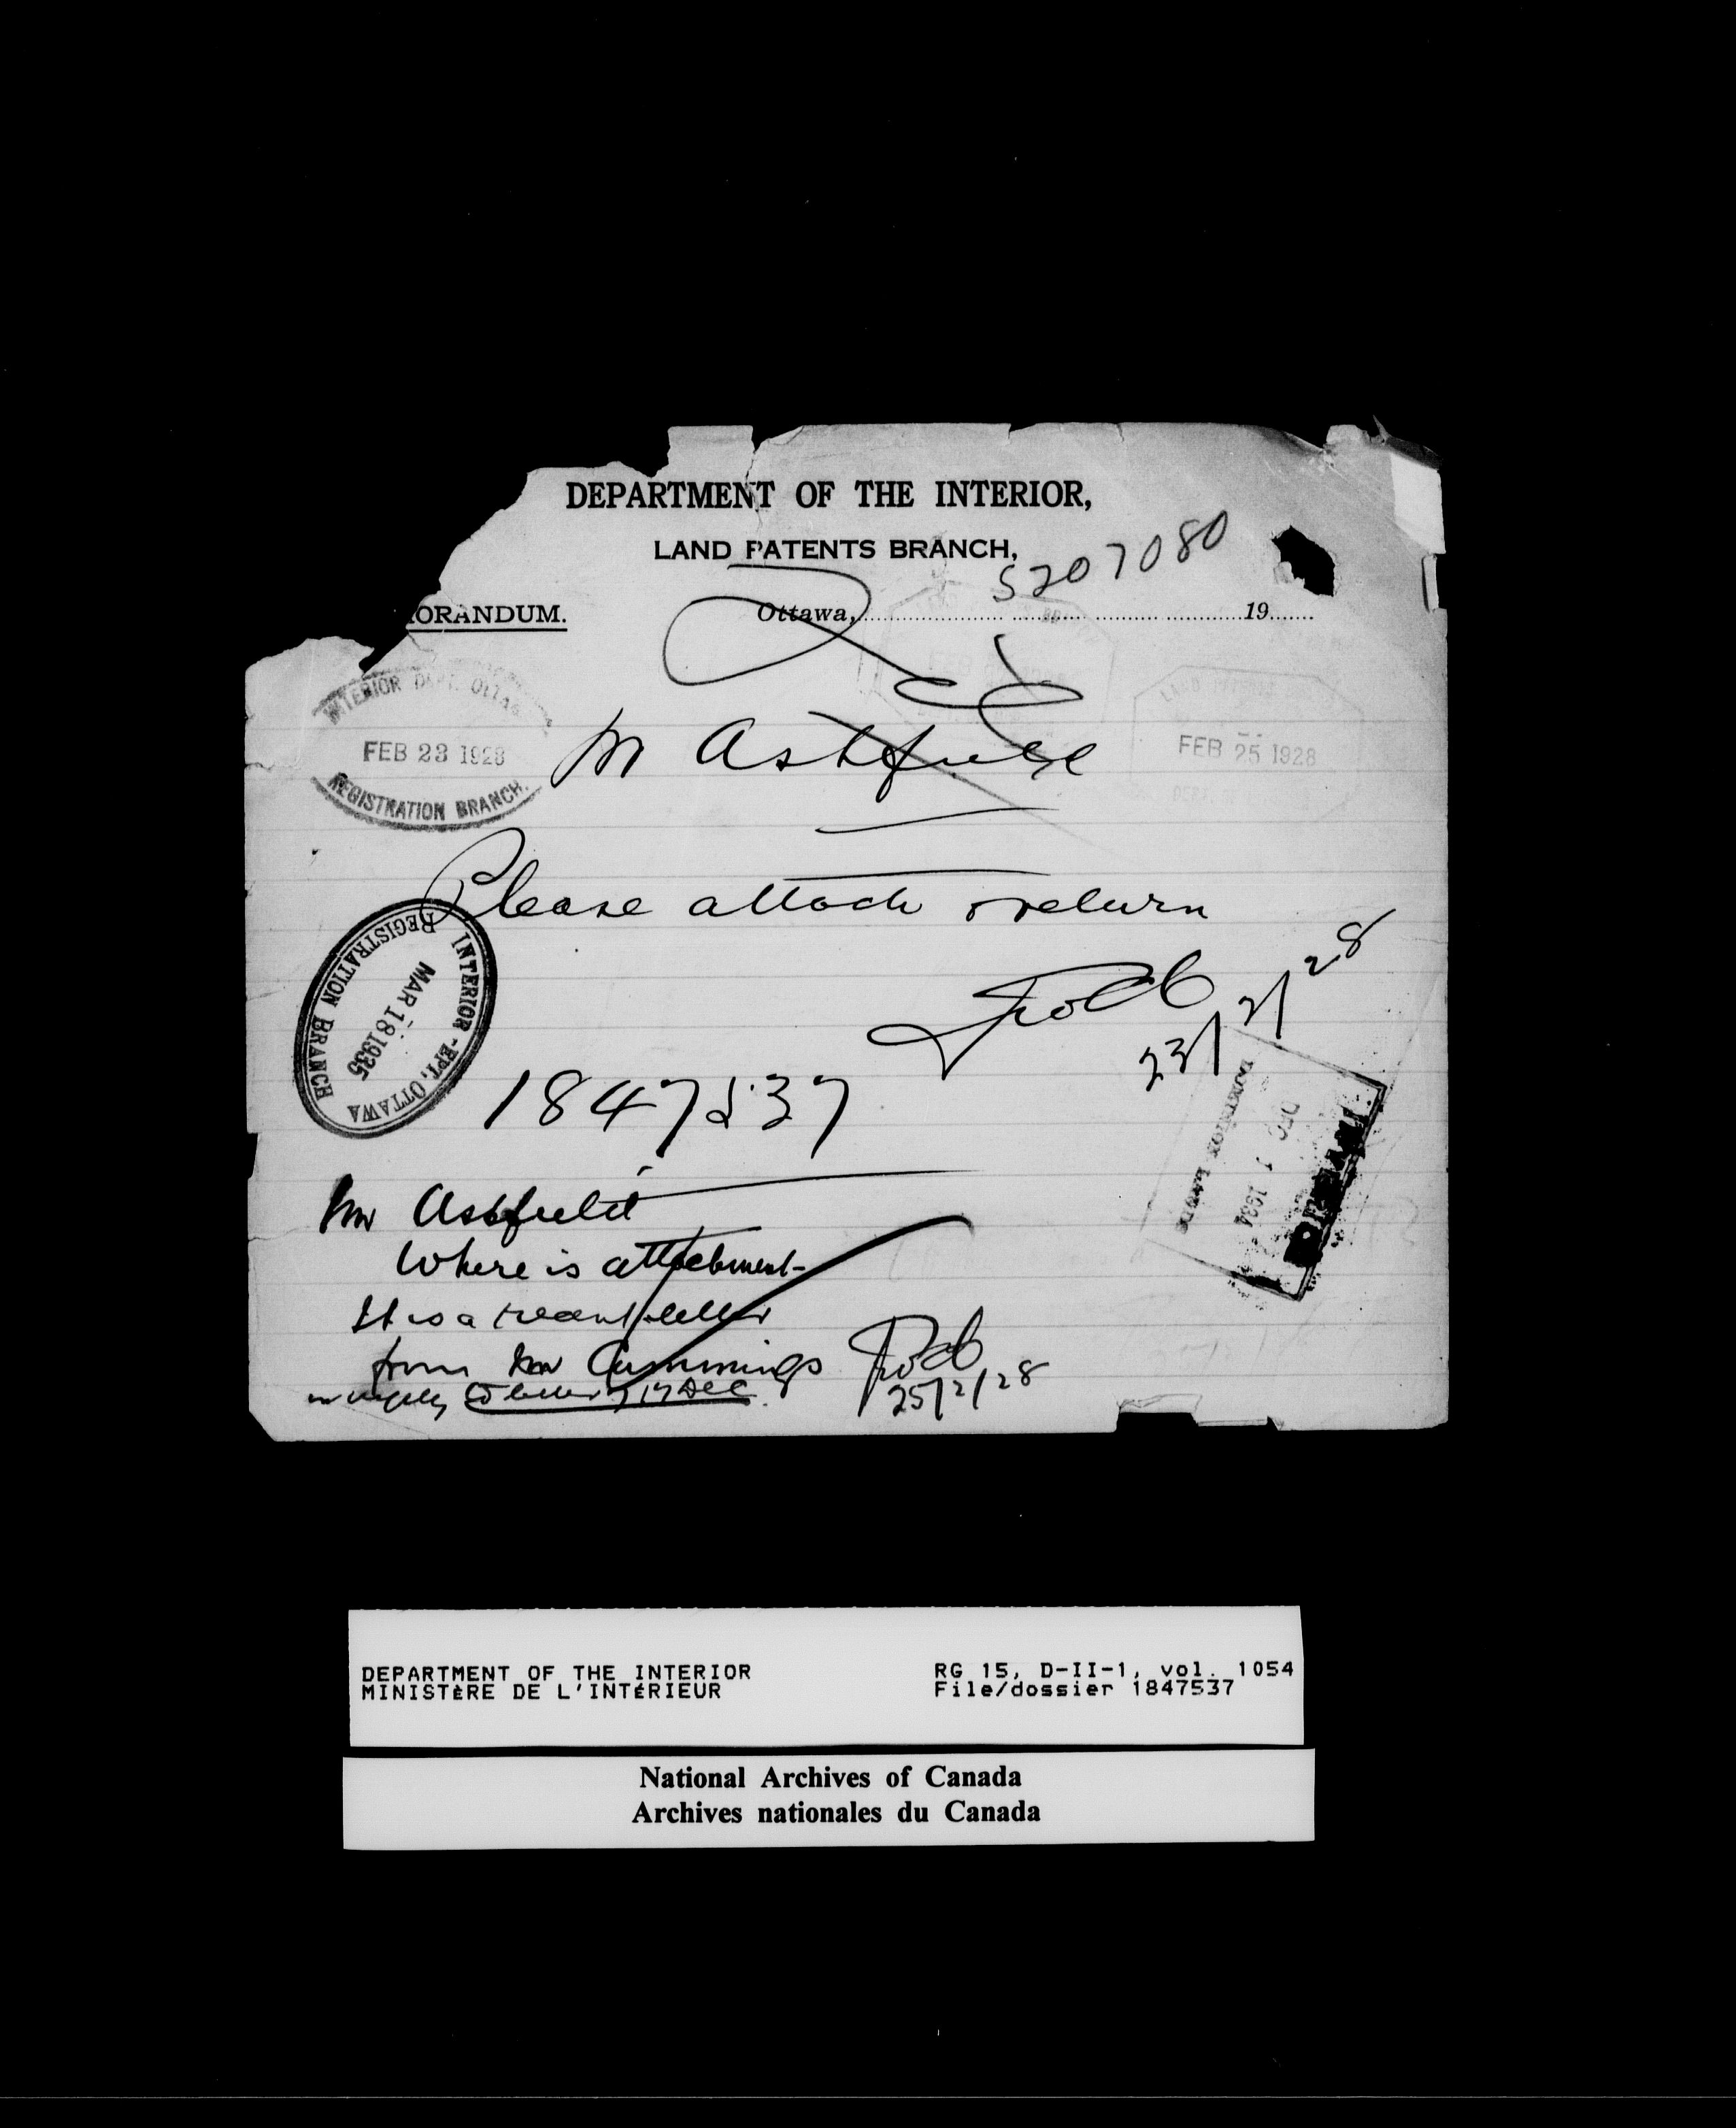 DEPARTMENT OF THE INTERIOR,
LAND PATENTS BRANCH,
5207080
ORANDUM.
Ottawa, 19
INTERIOR DEPT. OTTAWA
FEB 23 1928
REGISTRATION BRANCH.
FEB 25 1928
Mr Ashfield
Please attach & return
23/2/28
INTERIOR EPT. OTTAWA
MAR 18 1935
REGISTRATION BRANCH
1847537
DOMINION LANDS
DEC 1 1934
Mr Ashfield
Where is attachment-
It is a recent letter
from Mr Cummings
in reply to letter of 17 Dec.
25/2/28
DEPARTMENT OF THE INTERIOR
MINISTÈRE DE L'INTÉRIEUR
RG 15, D-II-1, vol. 1054
File/dossier 1847537
National Archives of Canada
Archives nationales du Canada